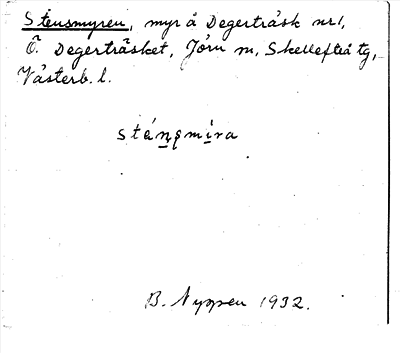 Stensmyren, myr å Degerträsk nr 1,
Ö. Degerträsket, Jörn sn, Skellefteå tg,
Västerb. l.
stánsmira
B. Nyppen 1932.